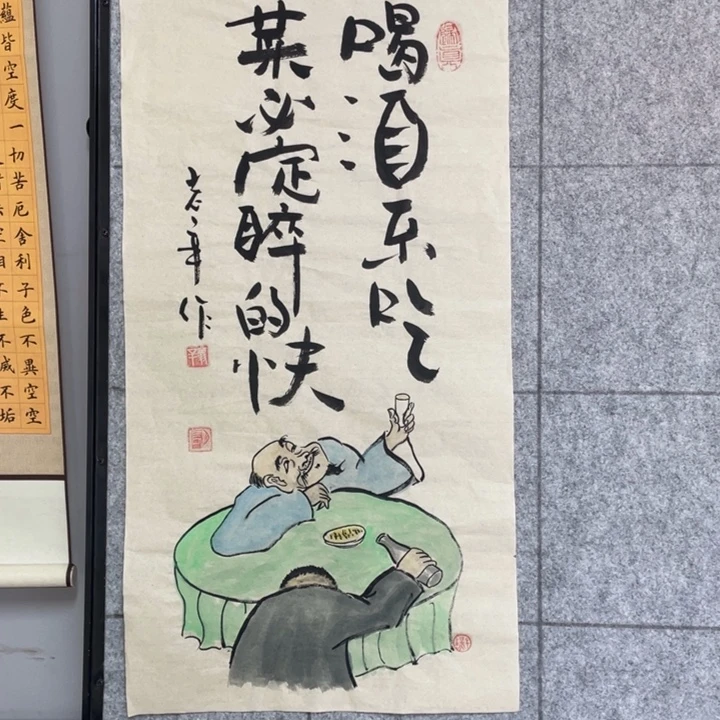 喝酒不吃
菜必定醉的快
作
蘊皆空度一切苦厄舍利子色不異空空
相不生不滅不垢